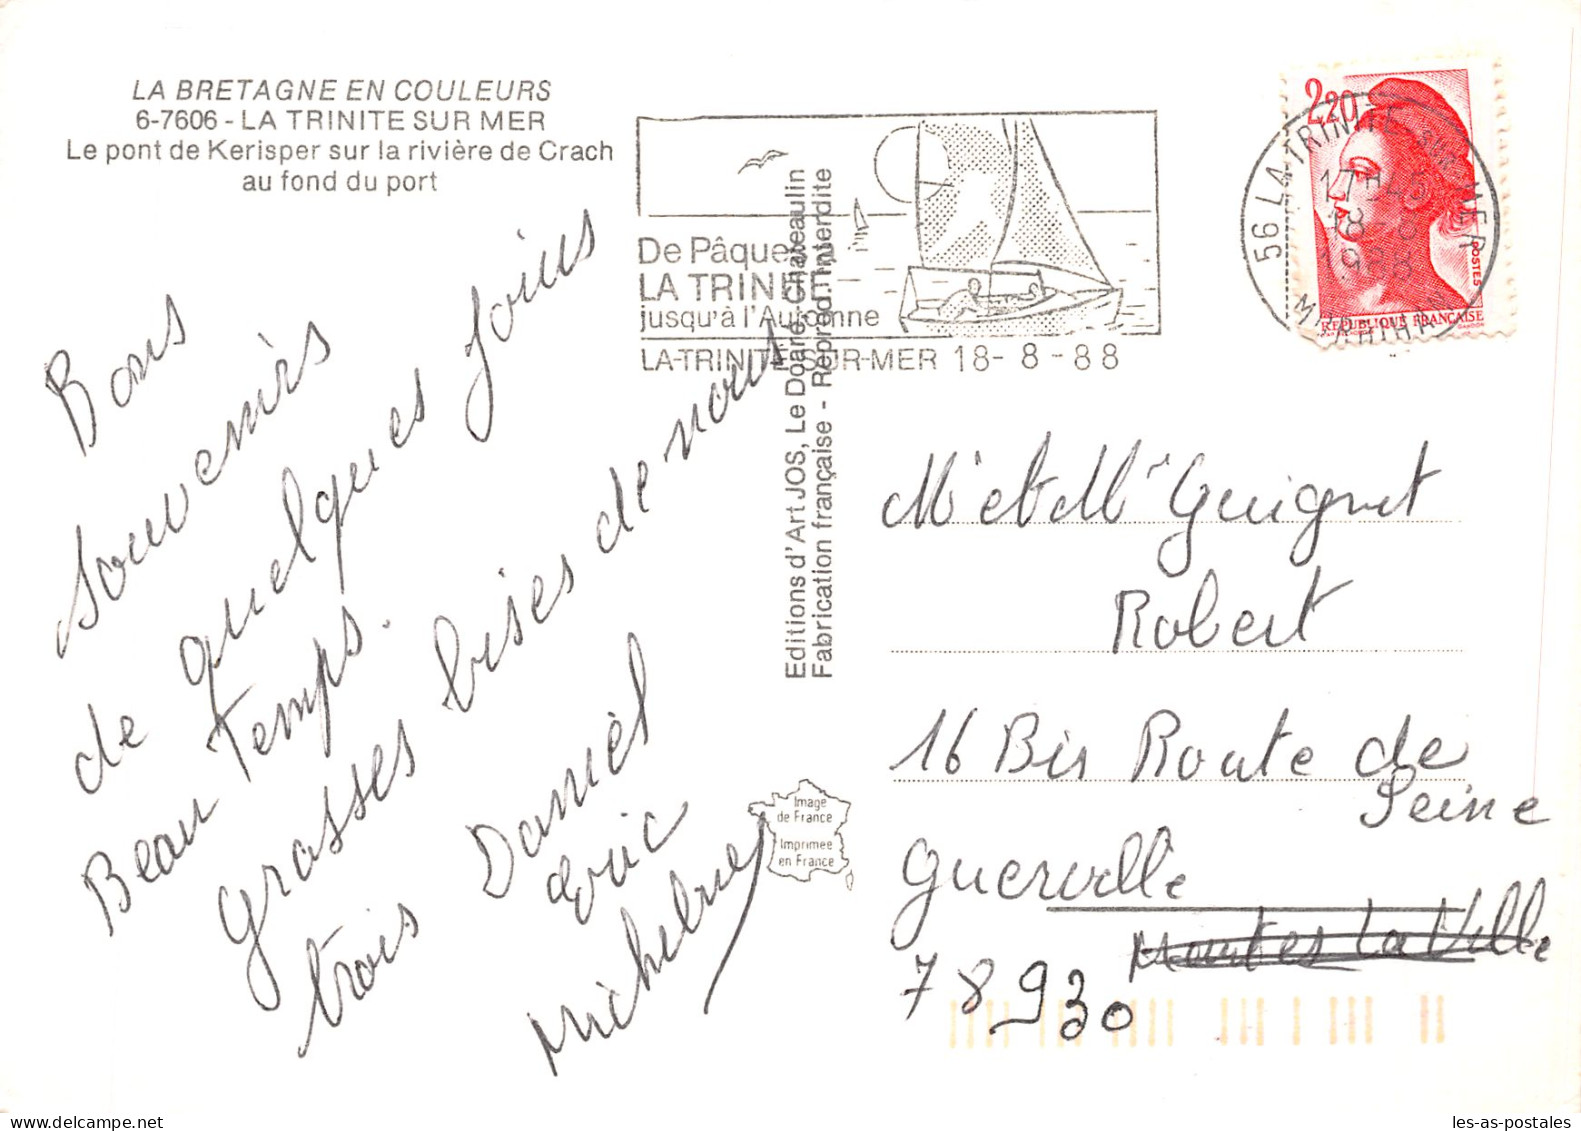 LA BRETAGNE EN COULEURS
6-7606 - LA TRINITE SUR MER
Le pont de Kerisper sur la rivière de Crach
au fond du port
De Pâques
LA TRINITE
jusqu'à l'Automne
LA-TRINITE-SUR-MER 18- 8 - 88
2,20
POSTES
REPUBLIQUE FRANÇAISE
GANDON
56 LA-TRINITE-SUR-MER
MORBIHAN
18-8
1988
Bons
souvenirs
de quelques jours
Beau temps.
Grosses bises de nous
trois Daniel
Eric
Editions d'Art JOS, Le Doaré, Chateaulin
Fabrication française - Reprod. Interdite
Image
de France
Imprimée
en France
Mr et Mr Guignet
Robert
16 Bis Route de
Seine
Guerville
Mantes La Ville
78930
les-as-postales
22/05/2023 16:04:06